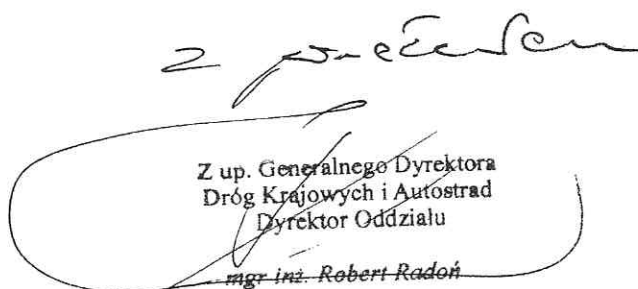 Z poważaniem
Z up. Generalnego Dyrektora
Dróg Krajowych i Autostrad
Dyrektor Oddziału
mgr inż. Robert Radoń